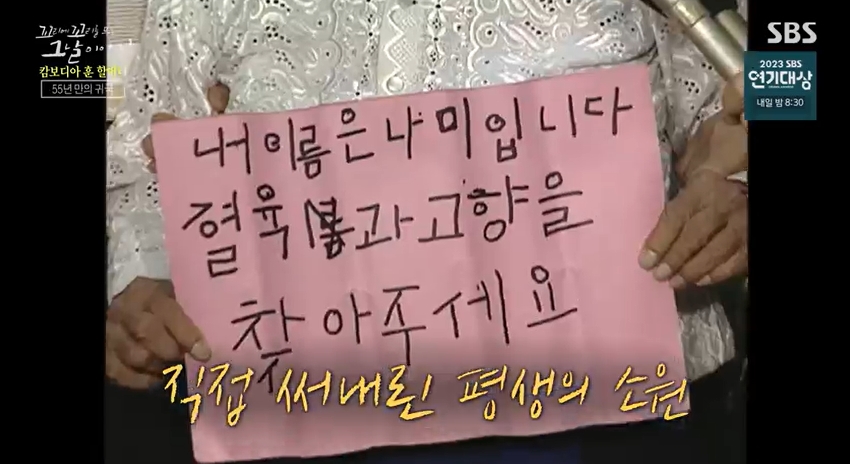 꼬리에 꼬리를 무는
그날 이야기
캄보디아 훈 할머니
55년 만의 귀국
SBS
2023 SBS
연기대상
내일 밤 8:30
내 이름은 나미입니다
혈육과 고향을
찾아주세요
직접 써내린 평생의 소원